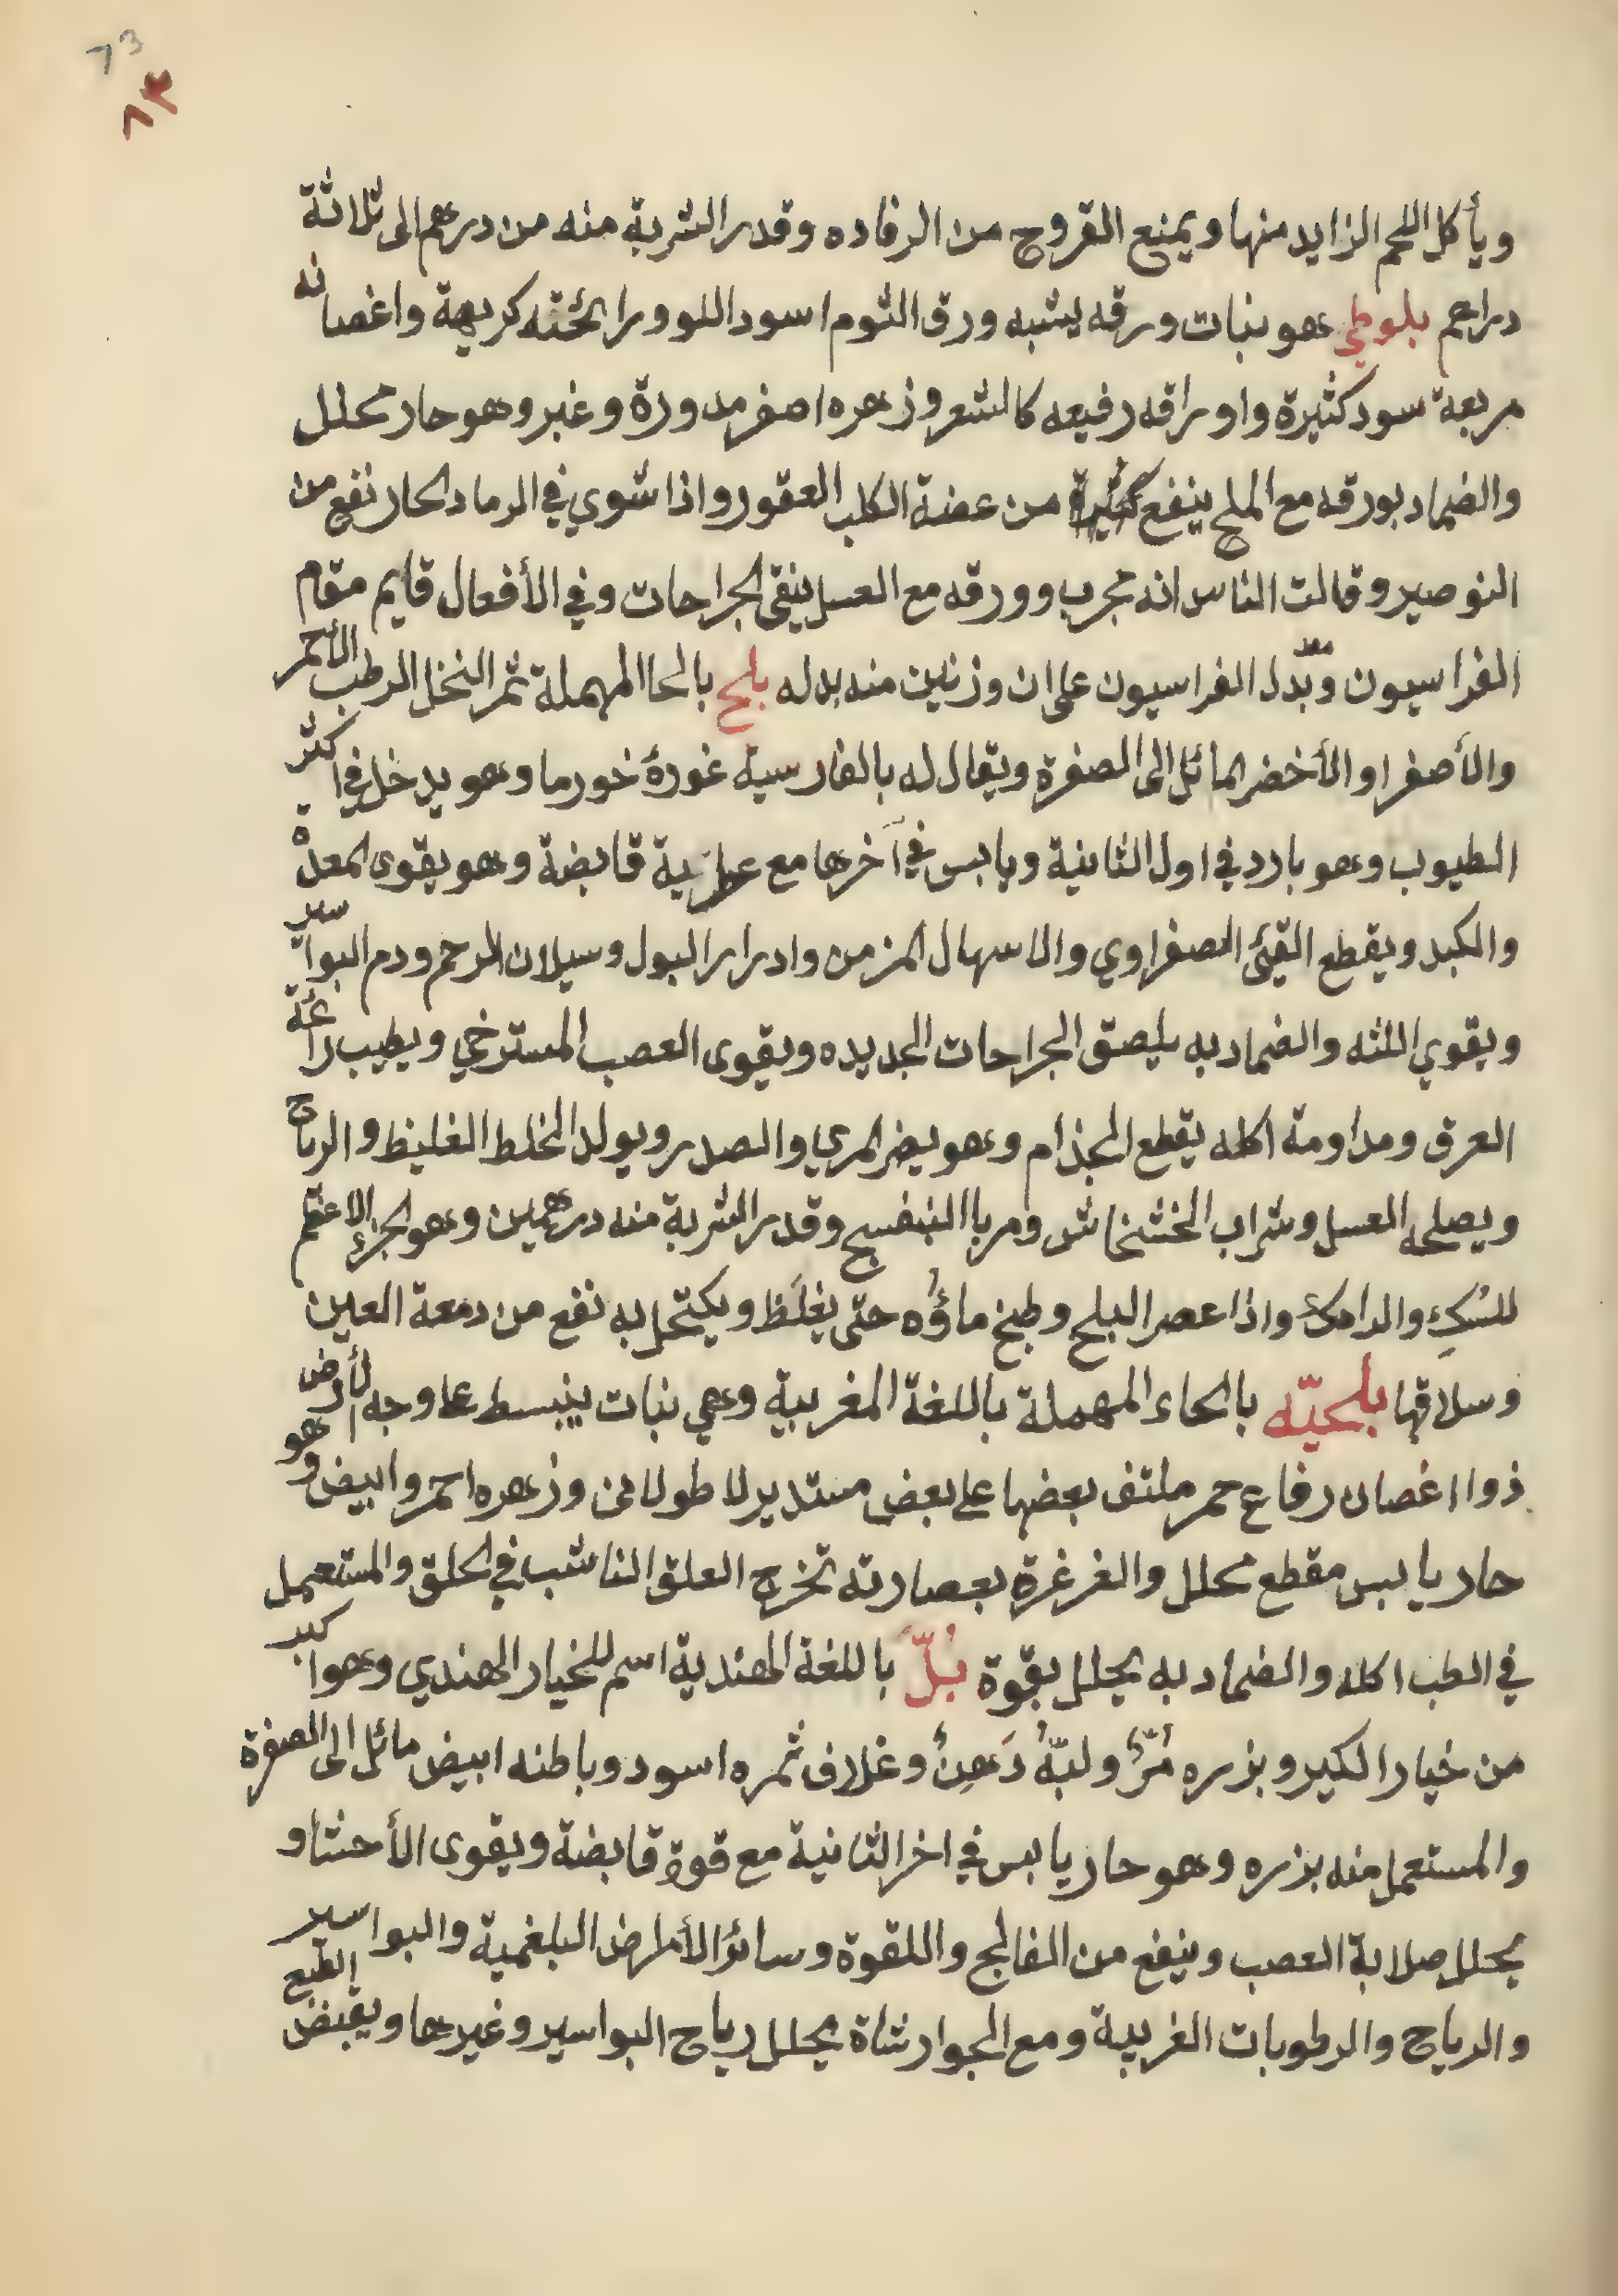 73
٨٣
ويأكل اللحم الزايد منها ويمنع القروح من الرفاده وقدر الشربة منه من درهم الى ثلاثة
دراهم بلوطي هو نبات ورقه يشبه ورق الثوم اسود اللو ورايحته كريهة واغصانه
مربعة سود كثيرة واوراقه رفيعه كالشعر وزهره اصفر مدورة وغبر وهو حار محلل
والضماد بورقه مع الملح ينفع كثيرة من عضة الكلب العقور واذا شوي في الرماد الحار نفع من
النوصير وقالت الناس انه مجرب وورقه مع العسل ينقى الجراحات وفي الأفعال قايم مقام
الفراسيون وبدل الفراسيون على ان وزنين منه بدله بلح بالحا المهملة ثمر النخل الرطب الأحمر
والأصفر او الأخضر المائل الى الصفرة ويقال له بالفارسية غورۀ خورما وهو يدخل في اكثر
الطيوب وهو بارد في اول الثانية ويابس في آخرها مع قابضة وهو يقوى المعدة
والكبد ويقطع القيئ الصفراوي والاسهال المزمن وادرار البول وسيلان الرحم ودم البواسير
ويقوي اللثه والضماد به يليصق الجراحات الجديده ويقوى العصب المسترخي ويطيب رائحة
العرق ومداومة اكله يقطع الجذام وهو يضر المري والصدر ويولد الخلط الغليظ والرياح
ويصلحه العسل وشراب الخشخاش ومربا البنفسج وقدر الشربة منه درهمين وهو الجزء الاعظم
للسُكِ والرامك واذا عصر البلح وطبخ ماؤُه حتى يغلَظ ويكتحل به نفع من دمعة العين
وسلاقها بلحيّه بالحاء المهملة باللغة المغربية وهي نبات ينبسط على وجه الأرض
ذوا اغصان رفاع حمر ملتف بعضها على بعض مستدير لا طولانى وزهره احمر وابيض وهو
حار يابس مقطع محلل والغرغرة بعصارته تخرج العلق الناشب في الحلق والمستعمل
في الطب اكله والضماد به يحلل بقوة بُلّ باللغة الهندية اسم للخيار الهندي وهو اكبر
من خيار الكبر وبزره مُرٌّ ولبّهُ دَهِنٌ وغلاف ثمره اسود وباطنه ابيض مائل الى الصفرة
والمستعمل منه بزره وهو حار يابس في اخر الثانية مع قوة قابضة ويقوى الأحشا و
يحلل صلابة العصب وينفع من الفالج واللقوة وسائر الأمراض البلغمية والبواسير
والرياح والرطوبات الغريبة ومع الجوارشاة يحلل رياح البواسير وغيرها ويقبض الطبع